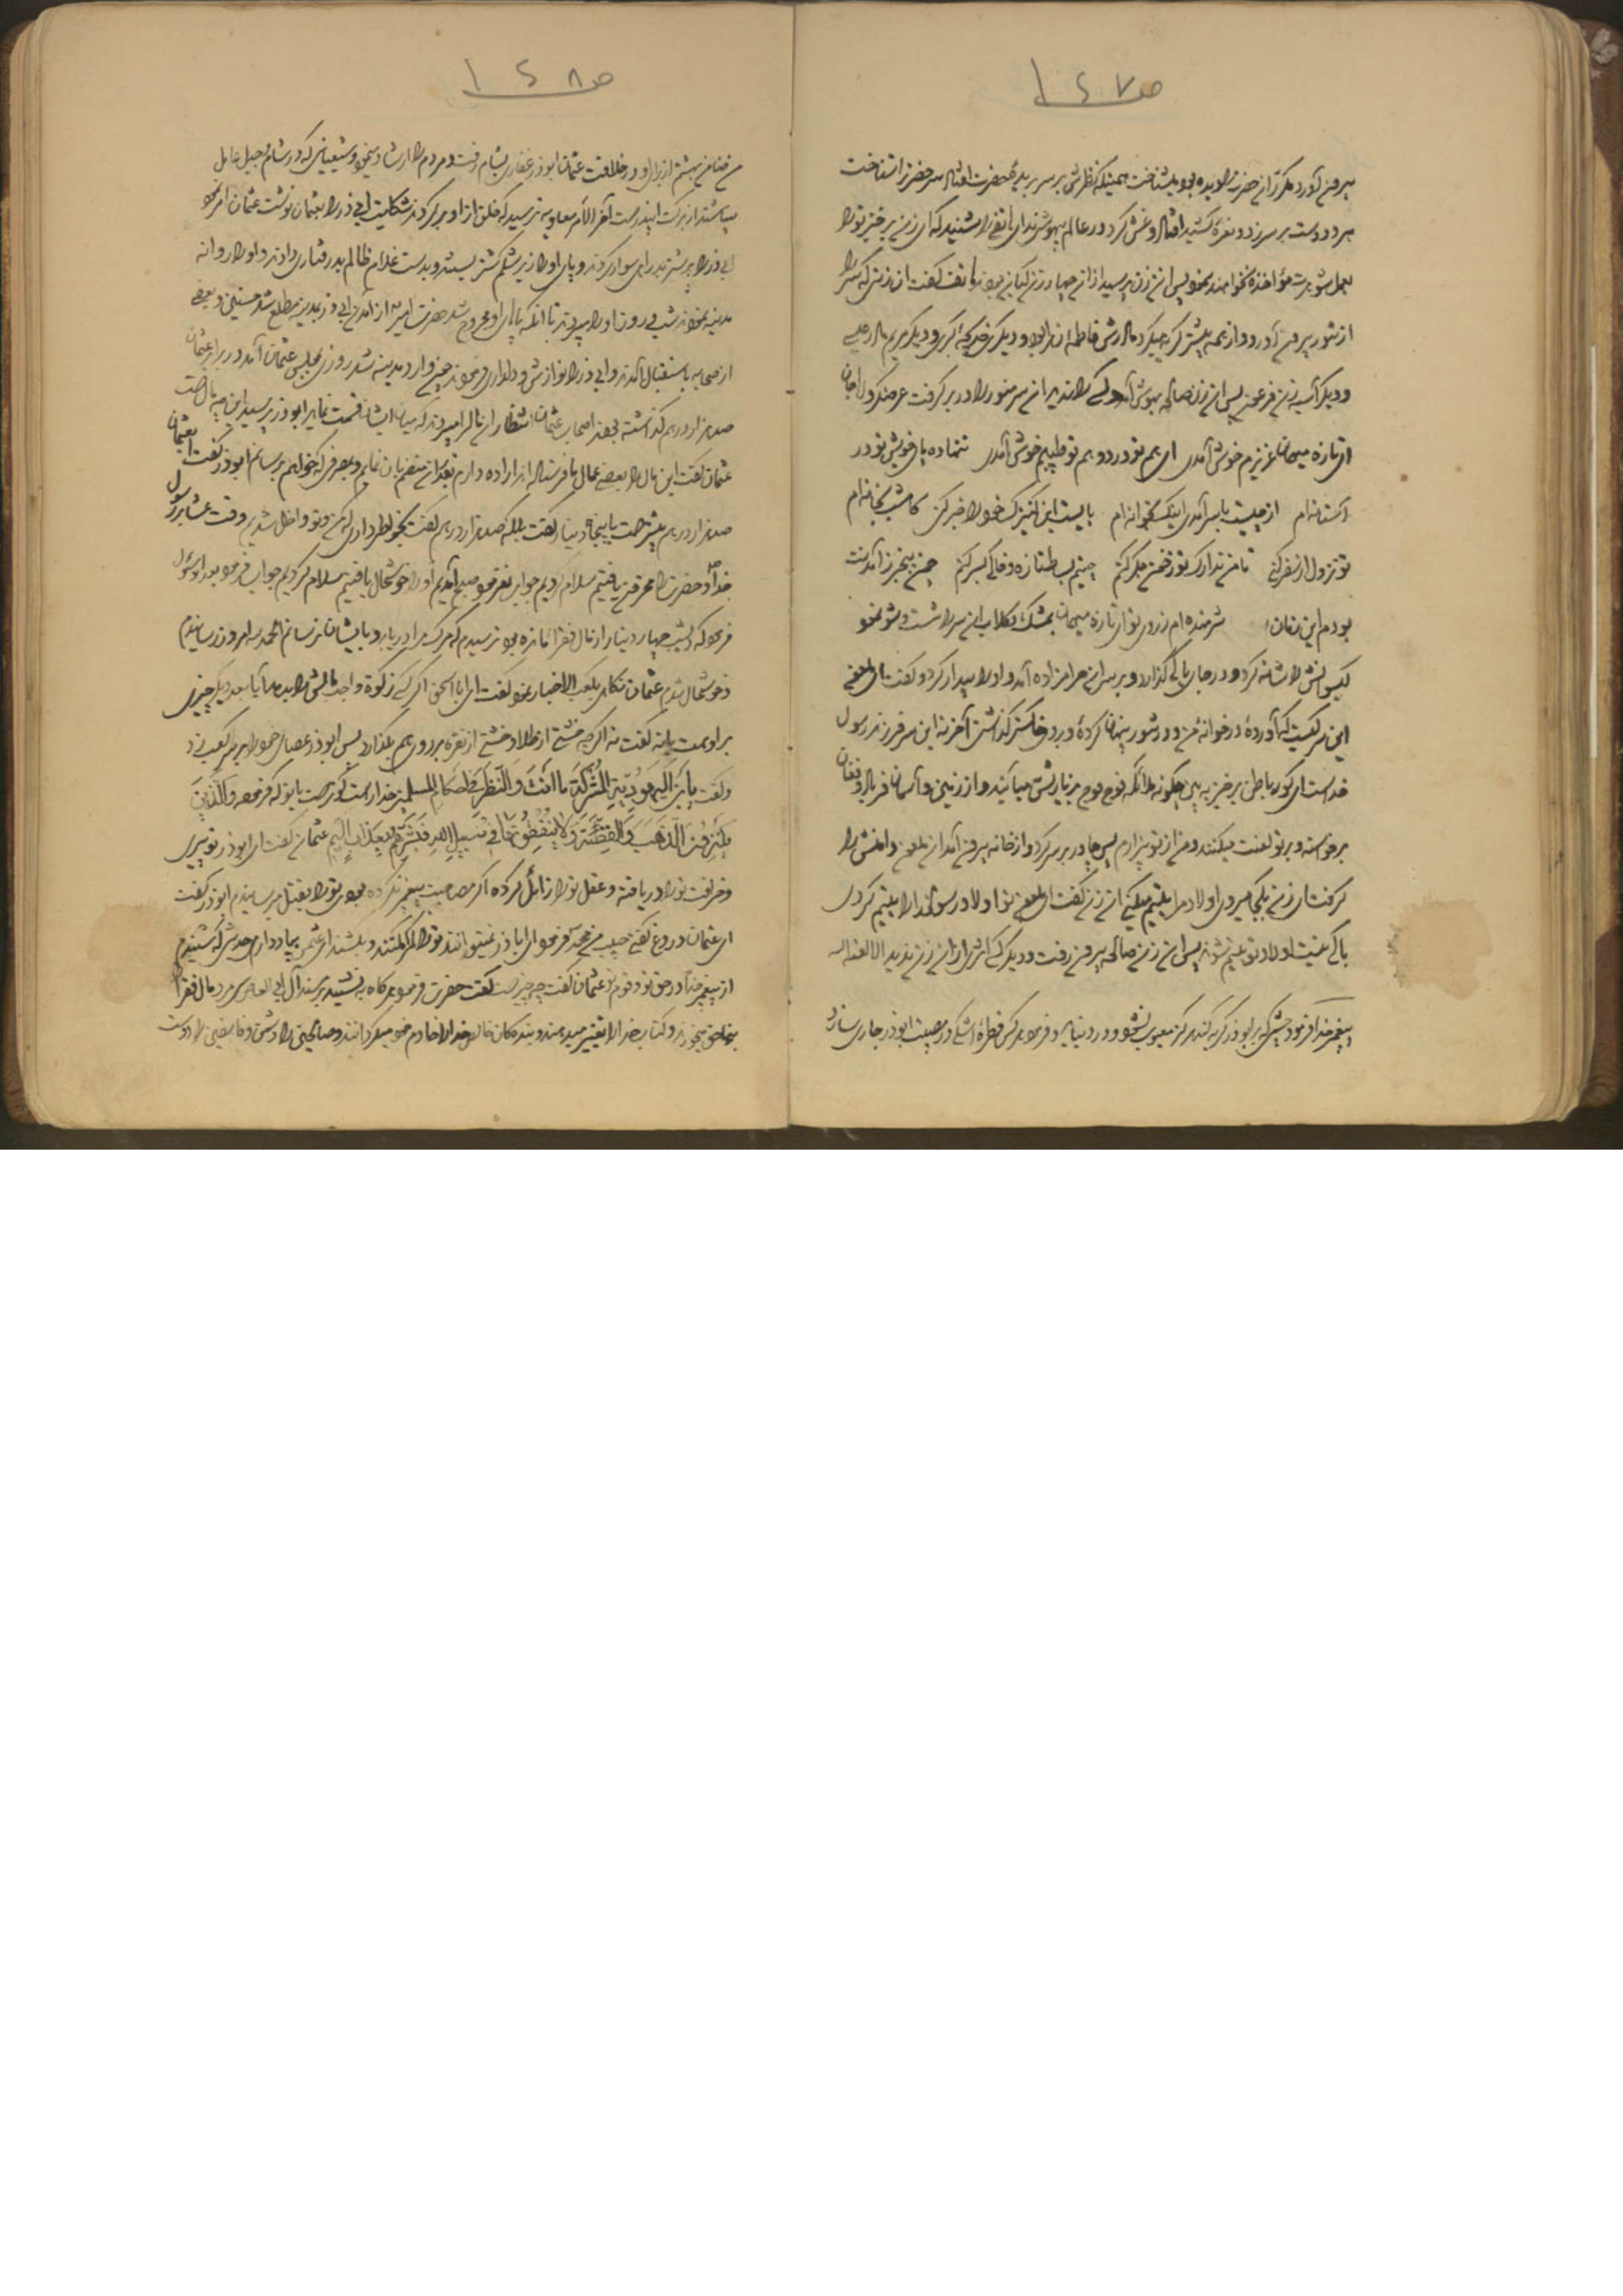 ص ۱۶۷
بیرون آورد مکرر آن حضرت را دیده بود و میشناخت همینکه نظرش بر سر بریدهٔ حضرت افتاد سر حضرت را شناخت
هر دو دست بر سر زد و نعرهٔ کشید افتاد و غش کرد در عالم بیهوشی ندای هاتفی را شنید که ای زن برخیز تو را
بعمل شوهرت مؤاخذه نخواهند نمود پس آن زن پرسید از آن چهار زن کیان بودند هاتف گفت آن زنی که سر را
از تنور بیرون آورد و از همه بیشتر گریه میکرد مادرش فاطمه زهرا بود و دیگری خدیجه کبری و دیگر مریم مادر عیسی
و دیگر آسیه زن فرعون پس آن زن صالحه بهوش آمد کسی را ندید آن سر منور را در بر گرفت عرض کرد
ای تازه میهمان عزیزم خوش آمدی ای هم تو درد و هم تو طبیبم خوش آمدی ننهاده پای خویش تو در
آستانه‌ام از چیست با سر آمدی اینک بخانه‌ام بایست این کنیزک خود را خبر کنی کامشب بخانه‌ام
تو نزول از سفر کنی تا من تدارک تو ز خون جگر کنم چینم بساط تازه و خاکی بسر کنم چون بیخبر ز آمدنت
بودم این زمان شرمنده‌ام ز روی تو ای تازه میهمان بمشک و گلاب آن سر را شست و شو نمود
گیسوانش را شانه کرد و در جای پاکی گذارد و بر سر آن حرامزاده آمد و او را بیدار کرد و گفت ای ملعون
این سر کیست که آوردهٔ در خانهٔ من و در تنور پنهان کردهٔ و بر روی خاکستر گذاشتی آخر نه این سر فرزند رسول
خداست ای کور باطن برخیز به بین چگونه ملائکه فوج فوج بزیارتش میآیند و از زمین و آسمان فریاد و فغان
برخواسته و بر تو لعنت میکنند و من از تو بیزارم پس چادر بر سر کرد و از خانه بیرون آمد آن ملعون دامنش را
گرفت ای زن بکجا میروی اولاد مرا یتیم میکنی آن زن گفت ای ملعون تو اولاد رسولخدا را یتیم کردی
باکی نیست اولاد تو یتیم شوند پس آن زن صالحه بیرون رفت و دیگر کسی اثری از آن زن ندید الا لعنة الله
پیغمبر خدا فرمود چشمی که بر ابوذر گریه کند هرگز معیوب نشود در دنیا و فرمود هر کس قطرهٔ اشکی در مصیبت ابوذر جاری سازد
ص ۱۶۸
من ضامن بهشتم از برای او در خلافت عثمان ابوذر غفاری بشام رفت و مردم را ارشاد نمود و شیعیانی که در شام و جبل عامل
میباشند از برکت ایندر است آخر الامر معاویه ترسید که خلق از او برگردند شکایت ابی ذر را بعثمان نوشت عثمان امر نمود
ابی ذر را بر شتر بد راهی سوار کردند و پای او را زیر شکم شتر بستند و بدست غلام ظالم بد رفتاری دادند و او را روانه
مدینه نمودند شب و روز او را میبردند تا آنکه پاهای او مجروح شد حضرت امیر از آمدن ابی ذر بمدینه مطلع شد حسنین و بعضی
از صحابه باستقبال آمدند و ابی ذر را نوازش و دلداری فرمودند چون وارد مدینه شد روزی بمجلس عثمان آمد در برابر عثمان
صد هزار درهم گذاشته بود اصحاب عثمان انتظار آن مال را میبردند که میان ایشان قسمت نماید ابوذر پرسید این چه مال است
عثمان گفت این مال را بعضی عمال ما فرستاده‌اند اراده دارم که دیگر منضم بآن نمایم و بمصرفی که خواهم برسانم ابوذر گفت بعثمان
صد هزار درهم بیشتر است یا پنج دینار گفت بلکه صد هزار درهم گفت بخاطر داری که من و تو داخل شدیم وقت عشا بر رسول
خدا و حضرت را محزون یافتیم سلام کردیم جواب نفرمود صبح آمدیم او را خوشحال یافتیم سلام کردیم جواب فرمود بعد از سؤال
فرمود که دیشب چهار دینار از مال فقرا مانده بود ترسیدم که مرگ مرا دریابد و بایشان نرسانم الحمد لله امروز رسانیدم
و خوشحال شدم عثمان نگاه بکعب الاخبار نمود گفت ای ابا اسحق اگر کسی زکوة واجب مالش را بدهد آیا بعد دیگر چیزی
بر او هست یا نه گفت نه اگر چه خشتی از طلا و خشتی از نقره بر روی هم بگذارد پس ابوذر عصای خود را بر سر کعب زد
و گفت یابن الیهودیة المشرکة ما انت و النظر فی احکام المسلمین خدا راست گوتر است یا تو که فرموده و الذین
یکنزون الذهب و الفضة و لا ینفقونها فی سبیل الله فبشرهم بعذاب الیم عثمان گفت ای ابوذر تو پیری
و خرافت تو را دریافته و عقل تو را زائل کرده اگر مصاحبت پیغمبر نکرده بودی تو را بقتل میرسانیدم ابوذر گفت
ای عثمان دروغ گفتی حبیب من محمد فرمود ای ابا ذر نمیتوانند تو را گمراه کنند و بکشند ای عثمان بیاد دارم حدیثی که شنیدم
از پیغمبر خدا در حق تو و قوم تو عثمان گفت چه چیز است گفت حضرت فرمود هرگاه به نشینند بر مسند آل ابی العاص سی مرد مال فقرا را
بناحق میخورند و کتاب خدا را تغییر میدهند و بندگان خدا را خادم خود میگردانند و صالحین را دشمن و فاسقین را دوست